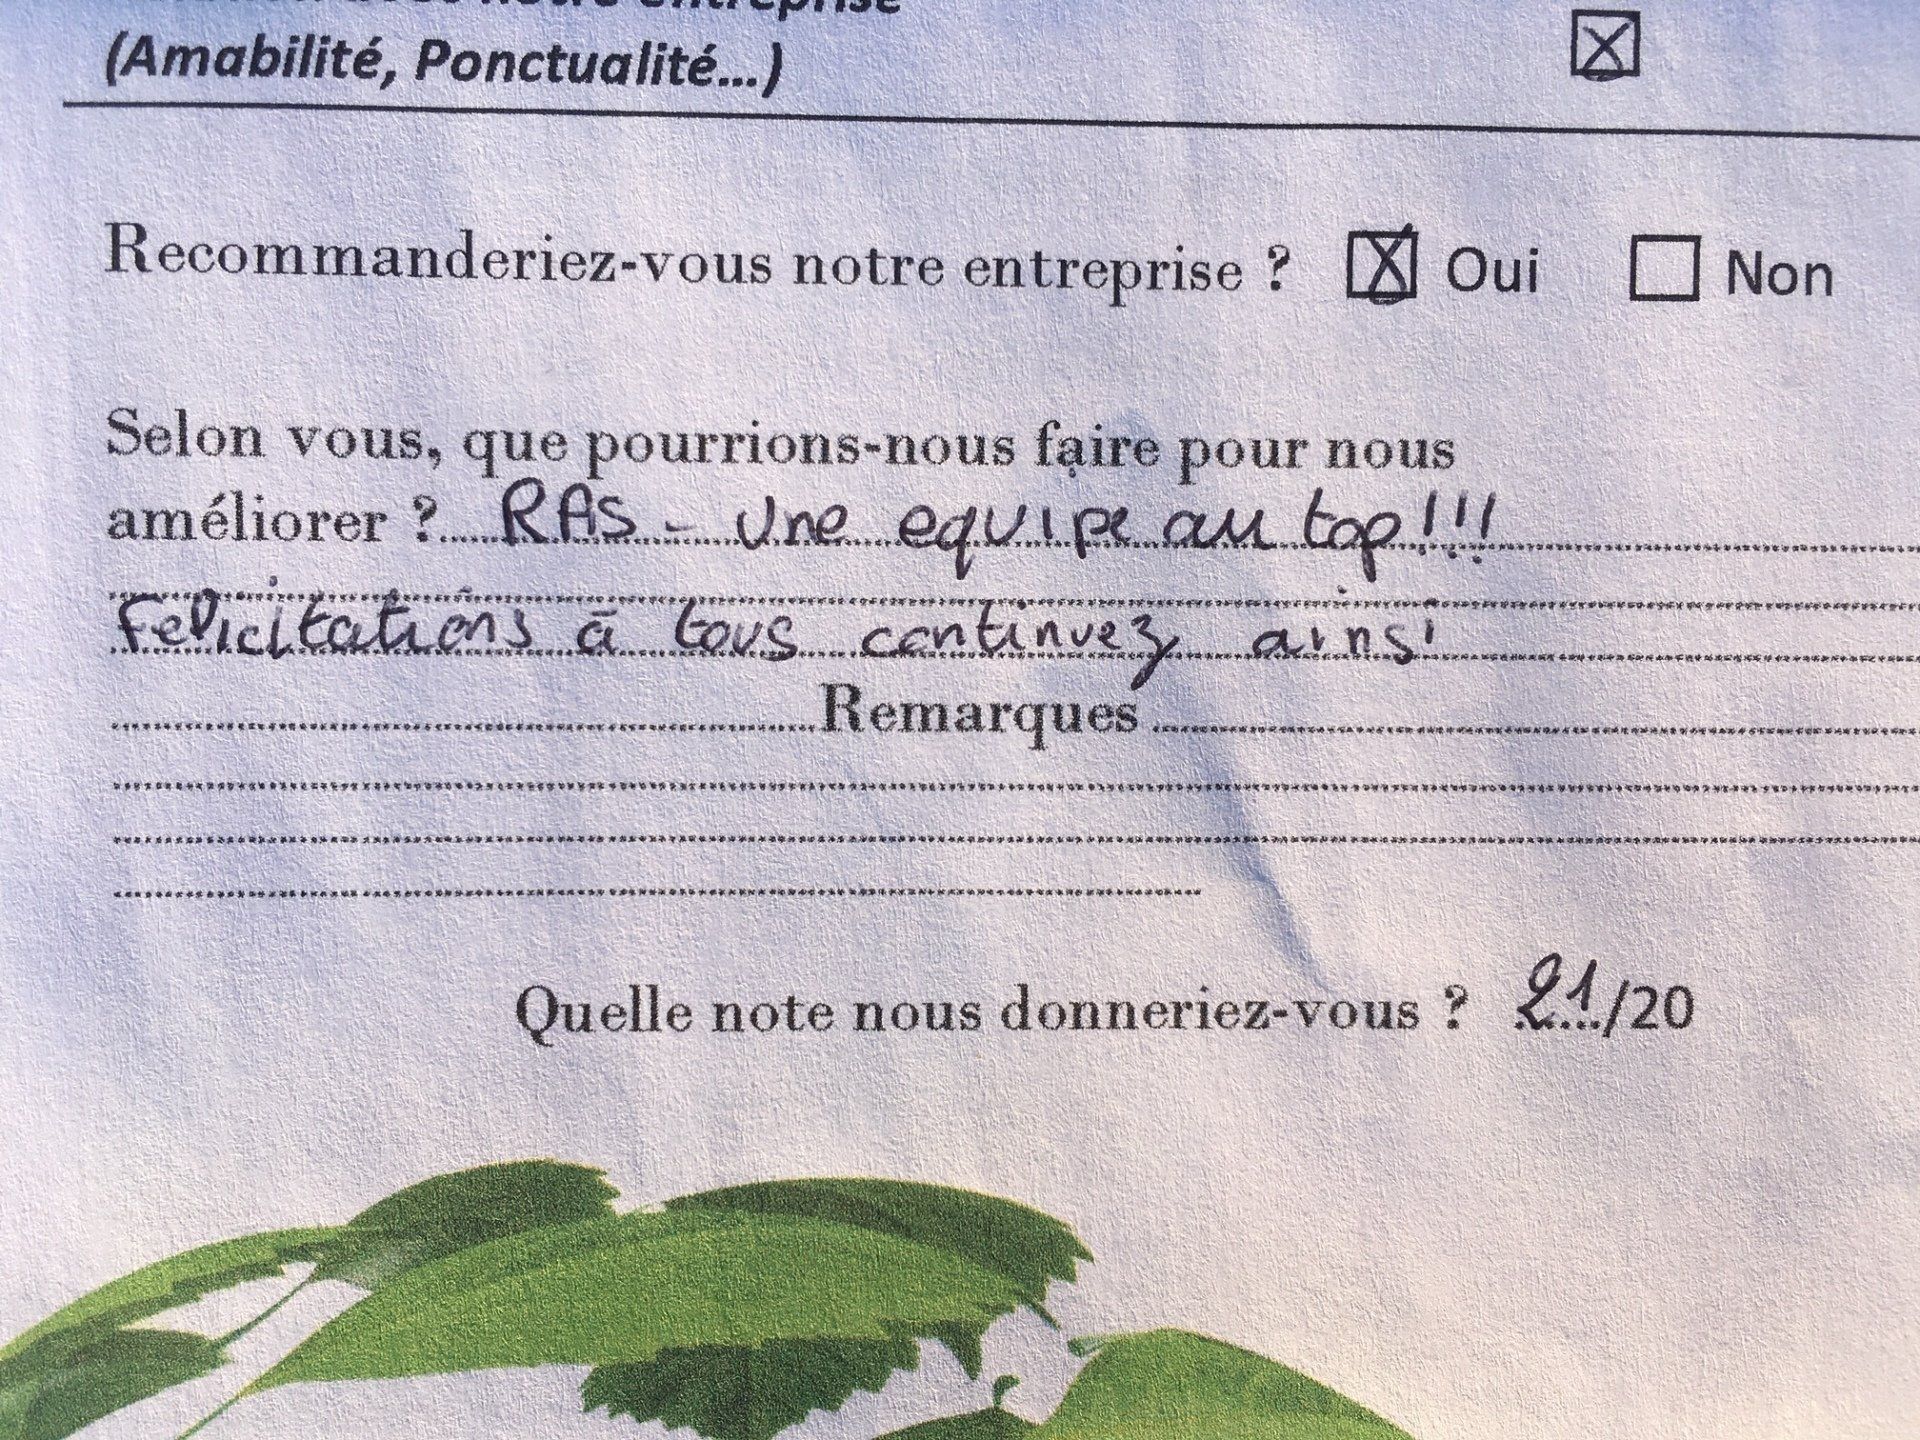 notre entreprise
(Amabilité, Ponctualité...)
Recommanderiez-vous notre entreprise ? ☒ Oui ☐ Non
Selon vous, que pourrions-nous faire pour nous
améliorer ? RAS - Une equipe au top!!!
Felicitations à tous continuez ainsi
Remarques
Quelle note nous donneriez-vous ? 21/20